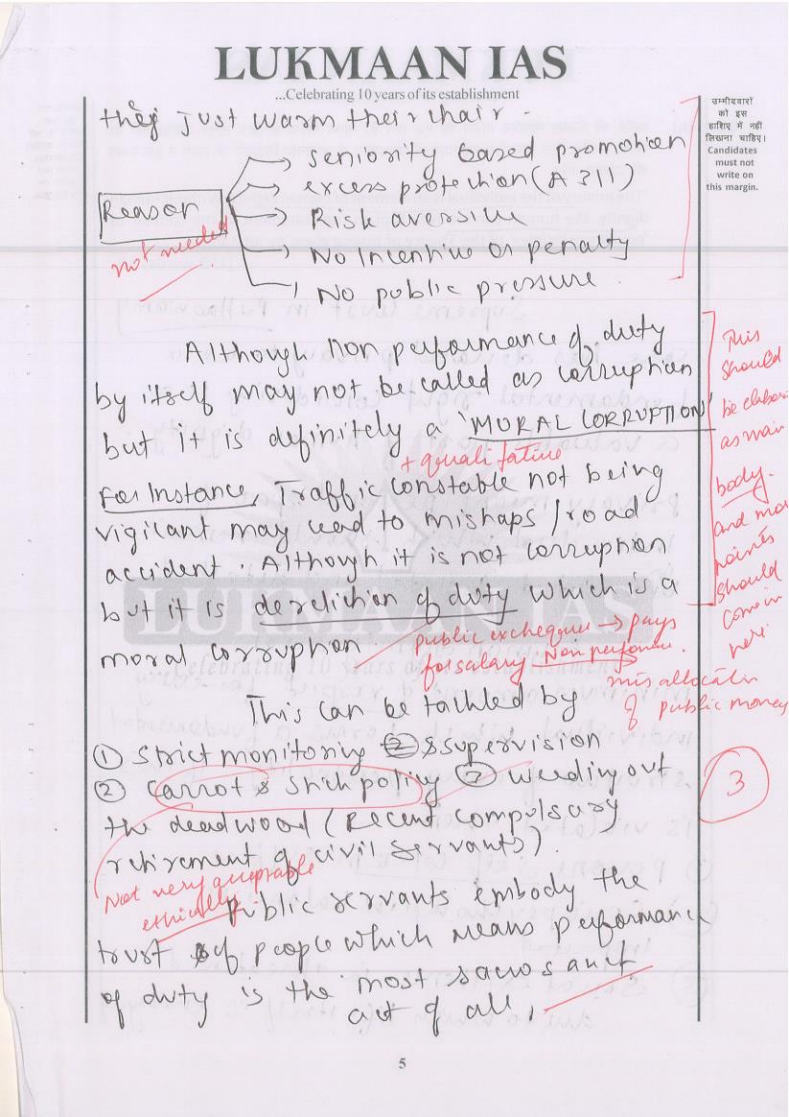 LUKMAAN IAS
...Celebrating 10 years of its establishment
उम्मीदवारों
को इस
हाशिए में नहीं
लिखना चाहिए।
Candidates
must not
write on
this margin.
they just warm their chair.
Reason
→ seniority based promotion
→ excess protection (A 311)
→ Risk aversive
→ No Incentive or penalty
→ No public pressure.
not needed
Although non performance of duty
by itself may not be called as corruption
but it is definitely a 'MORAL CORRUPTION'
+ qualitative
For Instance, Traffic constable not being
vigilant may lead to mishaps / road
accident. Although it is not corruption
but it is dereliction of duty which is a
moral corruption.
This
should
be elabora
as main
body.
and mor
points
should
come in
here
public exchequer → pays
for salary Non performer.
misallocation
of public money
This can be tackled by
① Strict monitoring & supervision
② Carrot & stick policy ③ weeding out
the deadwood (Recent compulsary
retirement of civil servants).
3
Not very acceptable
ethically
Public servants embody the
trust of people which means performance
of duty is the most sacrosanct
act of all.
LUKMAAN IAS
5